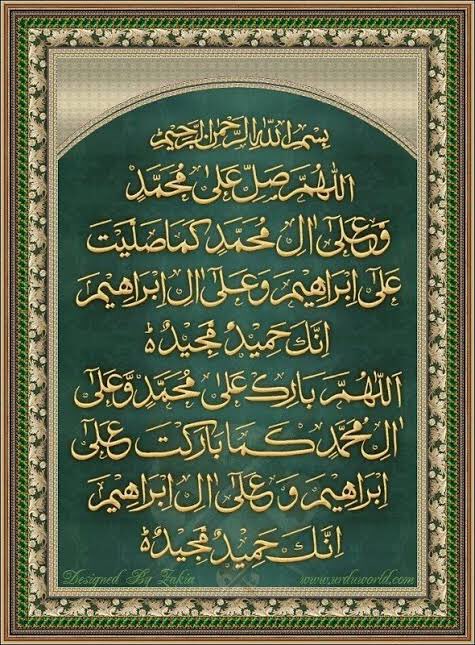 بسم الله الرحمن الرحيم
اَللّٰهُمَّ صَلِّ عَلٰى مُحَمَّدٍ
وَّعَلٰٓى اٰلِ مُحَمَّدٍ كَمَا صَلَّيْتَ
عَلٰٓى اِبْرَاهِيْمَ وَعَلٰٓى اٰلِ اِبْرَاهِيْمَ
اِنَّكَ حَمِيْدٌ مَّجِيْدٌ ؕ
اَللّٰهُمَّ بَارِكْ عَلٰى مُحَمَّدٍ وَّعَلٰٓى
اٰلِ مُحَمَّدٍ كَمَا بَارَكْتَ عَلٰٓى
اِبْرَاهِيْمَ وَعَلٰٓى اٰلِ اِبْرَاهِيْمَ
اِنَّكَ حَمِيْدٌ مَّجِيْدٌ ؕ
Designed By Zakia
www.urduworld.com